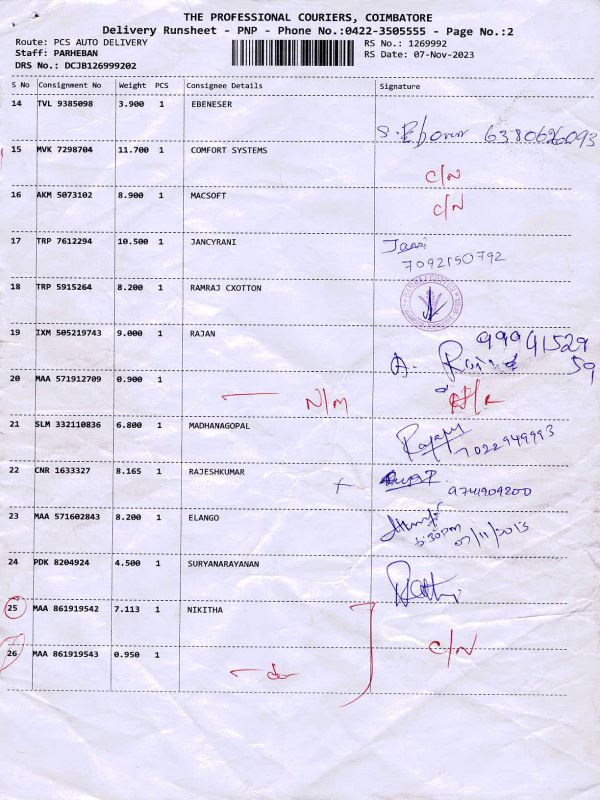 THE PROFESSIONAL COURIERS, COIMBATORE
Delivery Runsheet - PNP - Phone No.:0422-3505555 - Page No.:2
Route: PCS AUTO DELIVERY
RS No.: 1269992
Staff: PARHEBAN
RS Date: 07-Nov-2023
DRS No.: DCJB126999202
S No Consignment No Weight PCS Consignee Details Signature
14 TVL 9385098 3.900 1 EBENESER
6380626093
15 MVK 7298704 11.700 1 COMFORT SYSTEMS
C/N
16 AKM 5073102 8.900 1 MACSOFT
C/N
17 TRP 7612294 10.500 1 JANCYRANI
7092150792
18 TRP 5915264 8.200 1 RAMRAJ CXOTTON
19 IXM 505219743 9.000 1 RAJAN
99941529
59
20 MAA 571912709 0.900 1
N/M
21 SLM 332110836 6.800 1 MADHANAGOPAL
7022949993
22 CNR 1633327 8.165 1 RAJESHKUMAR
9741909200
23 MAA 571602843 8.200 1 ELANGO
6:30pm
07/11/2013
24 PDK 8204924 4.500 1 SURYANARAYANAN
25 MAA 861919542 7.113 1 NIKITHA
C/N
26 MAA 861919543 0.950 1